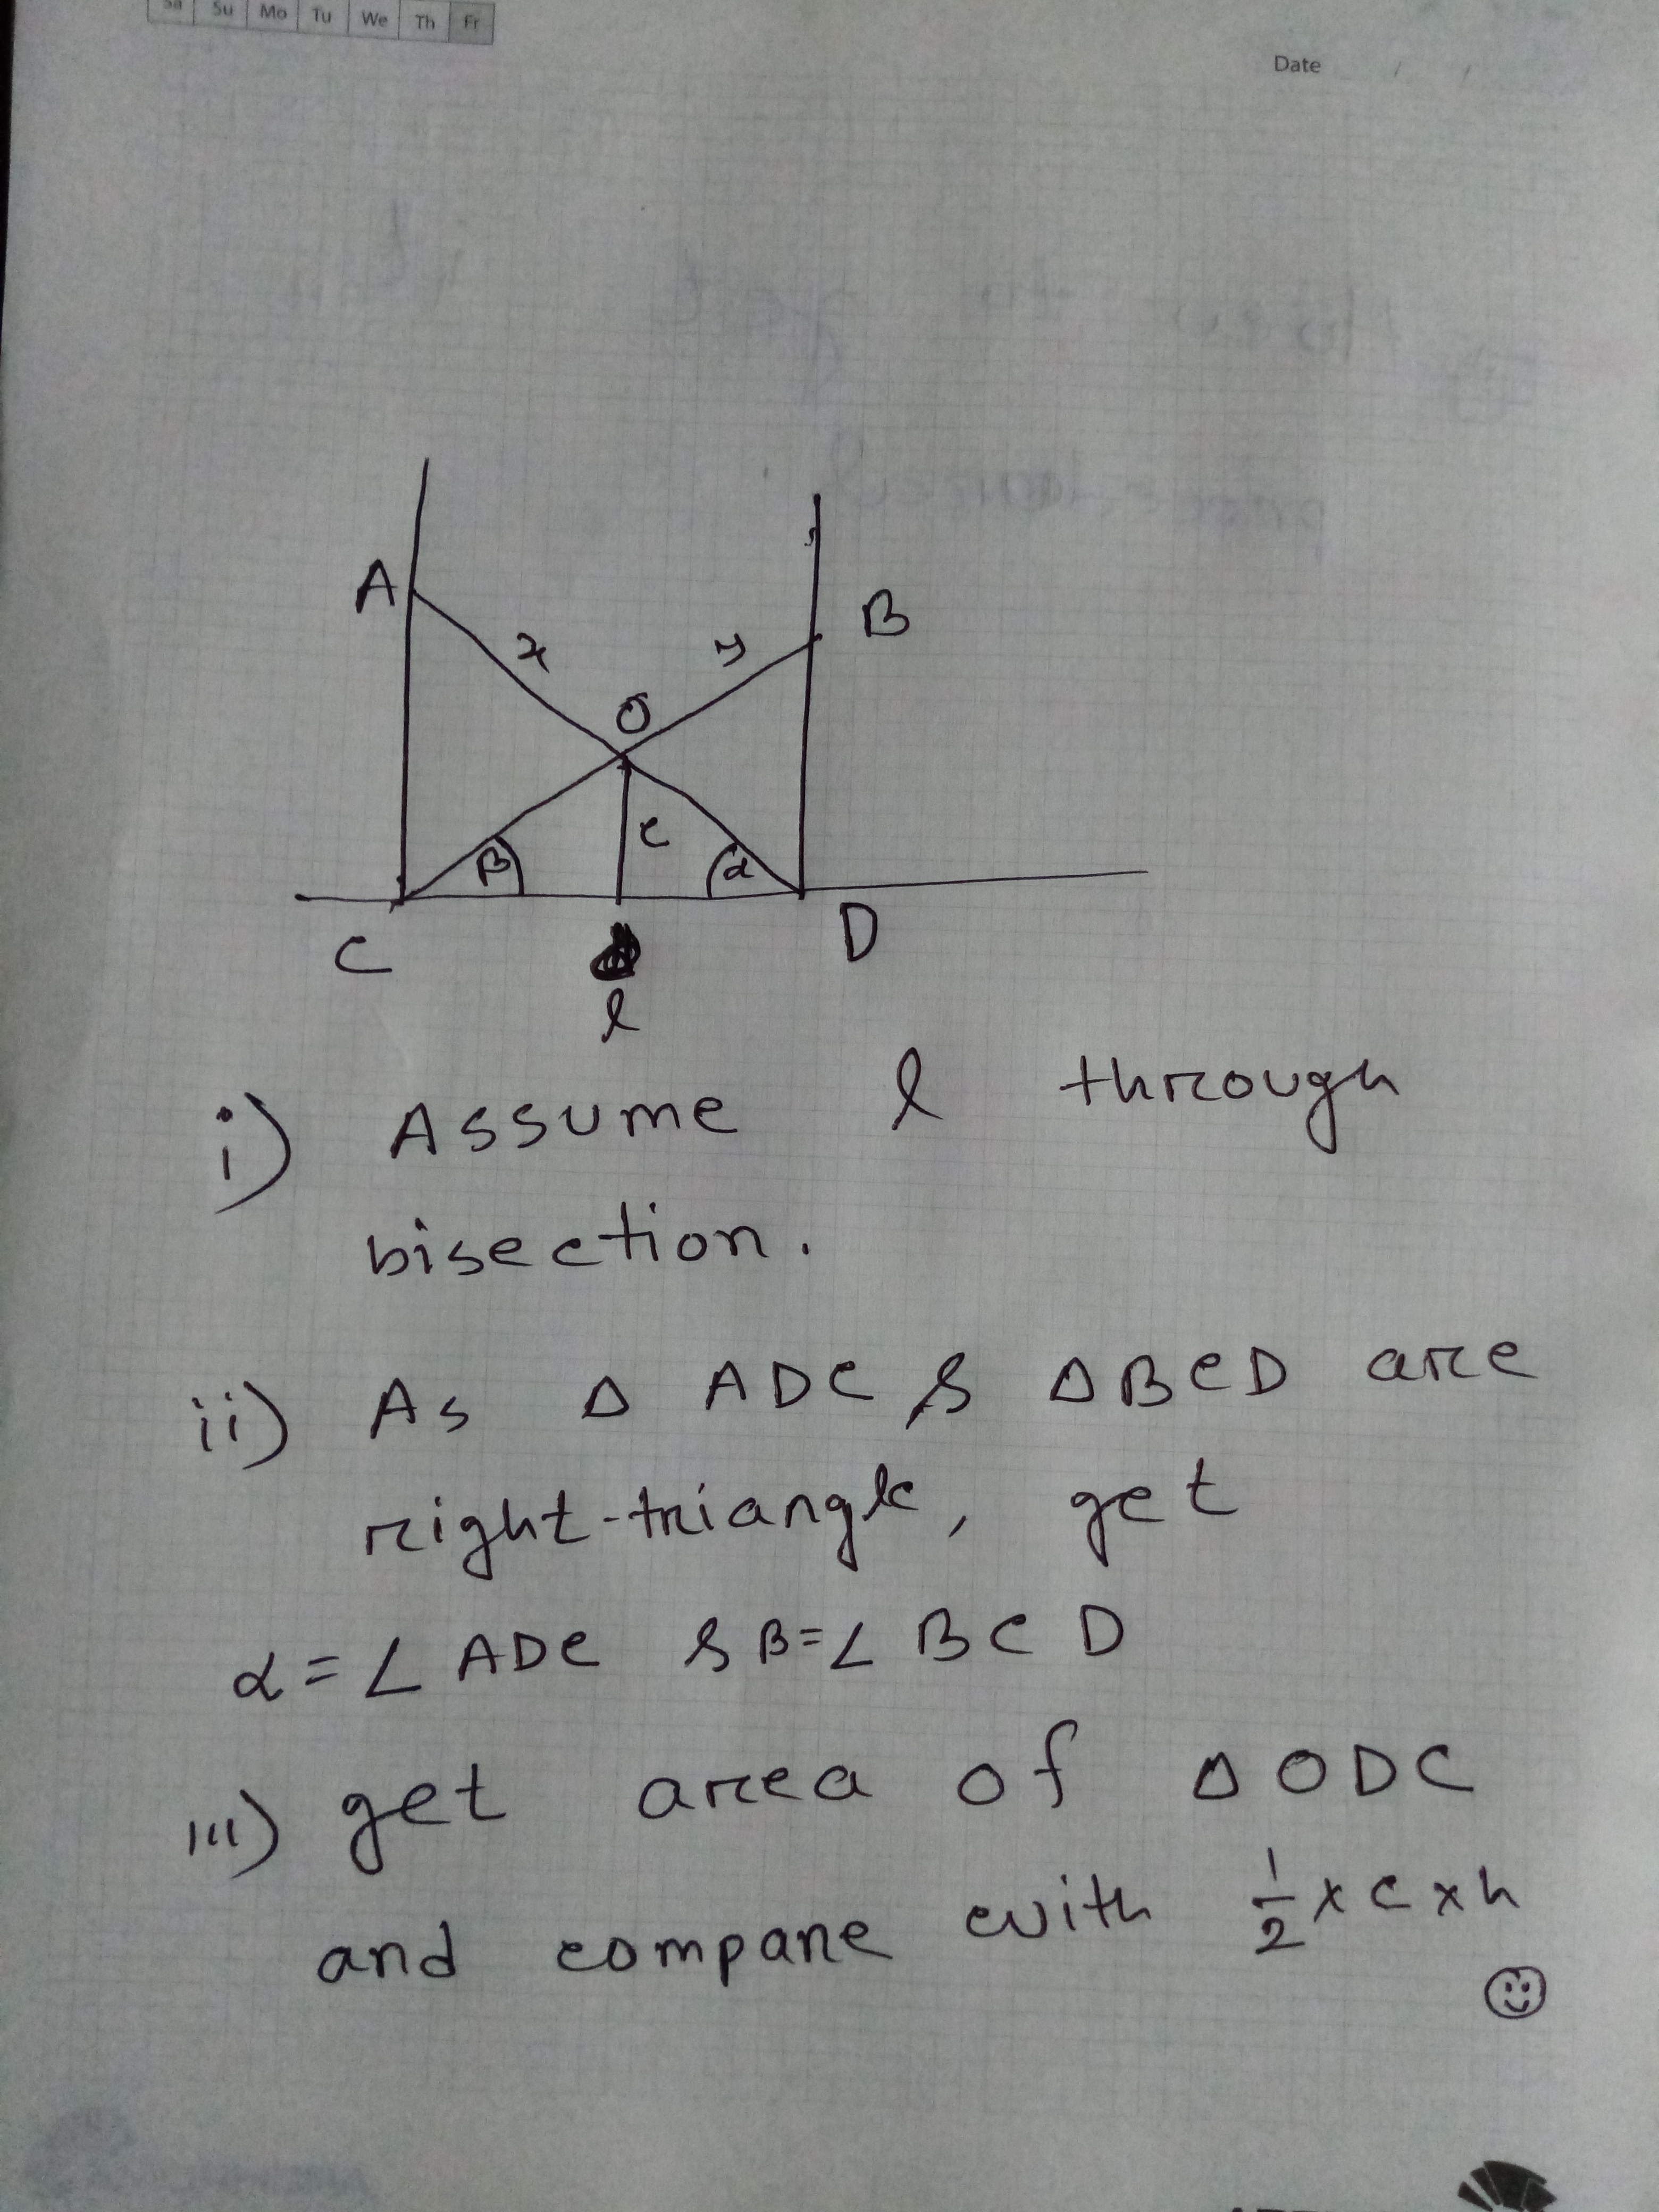 Sa Su Mo Tu We Th Fr
Date / /
A
B
x
y
O
c
β
α
C
D
l
i) Assume l through
bisection.
ii) As Δ ADC & Δ BCD are
right-triangle, get
α = ∠ ADC & β = ∠ BCD
iii) get area of Δ ODC
and compare with 1/2 × c × h